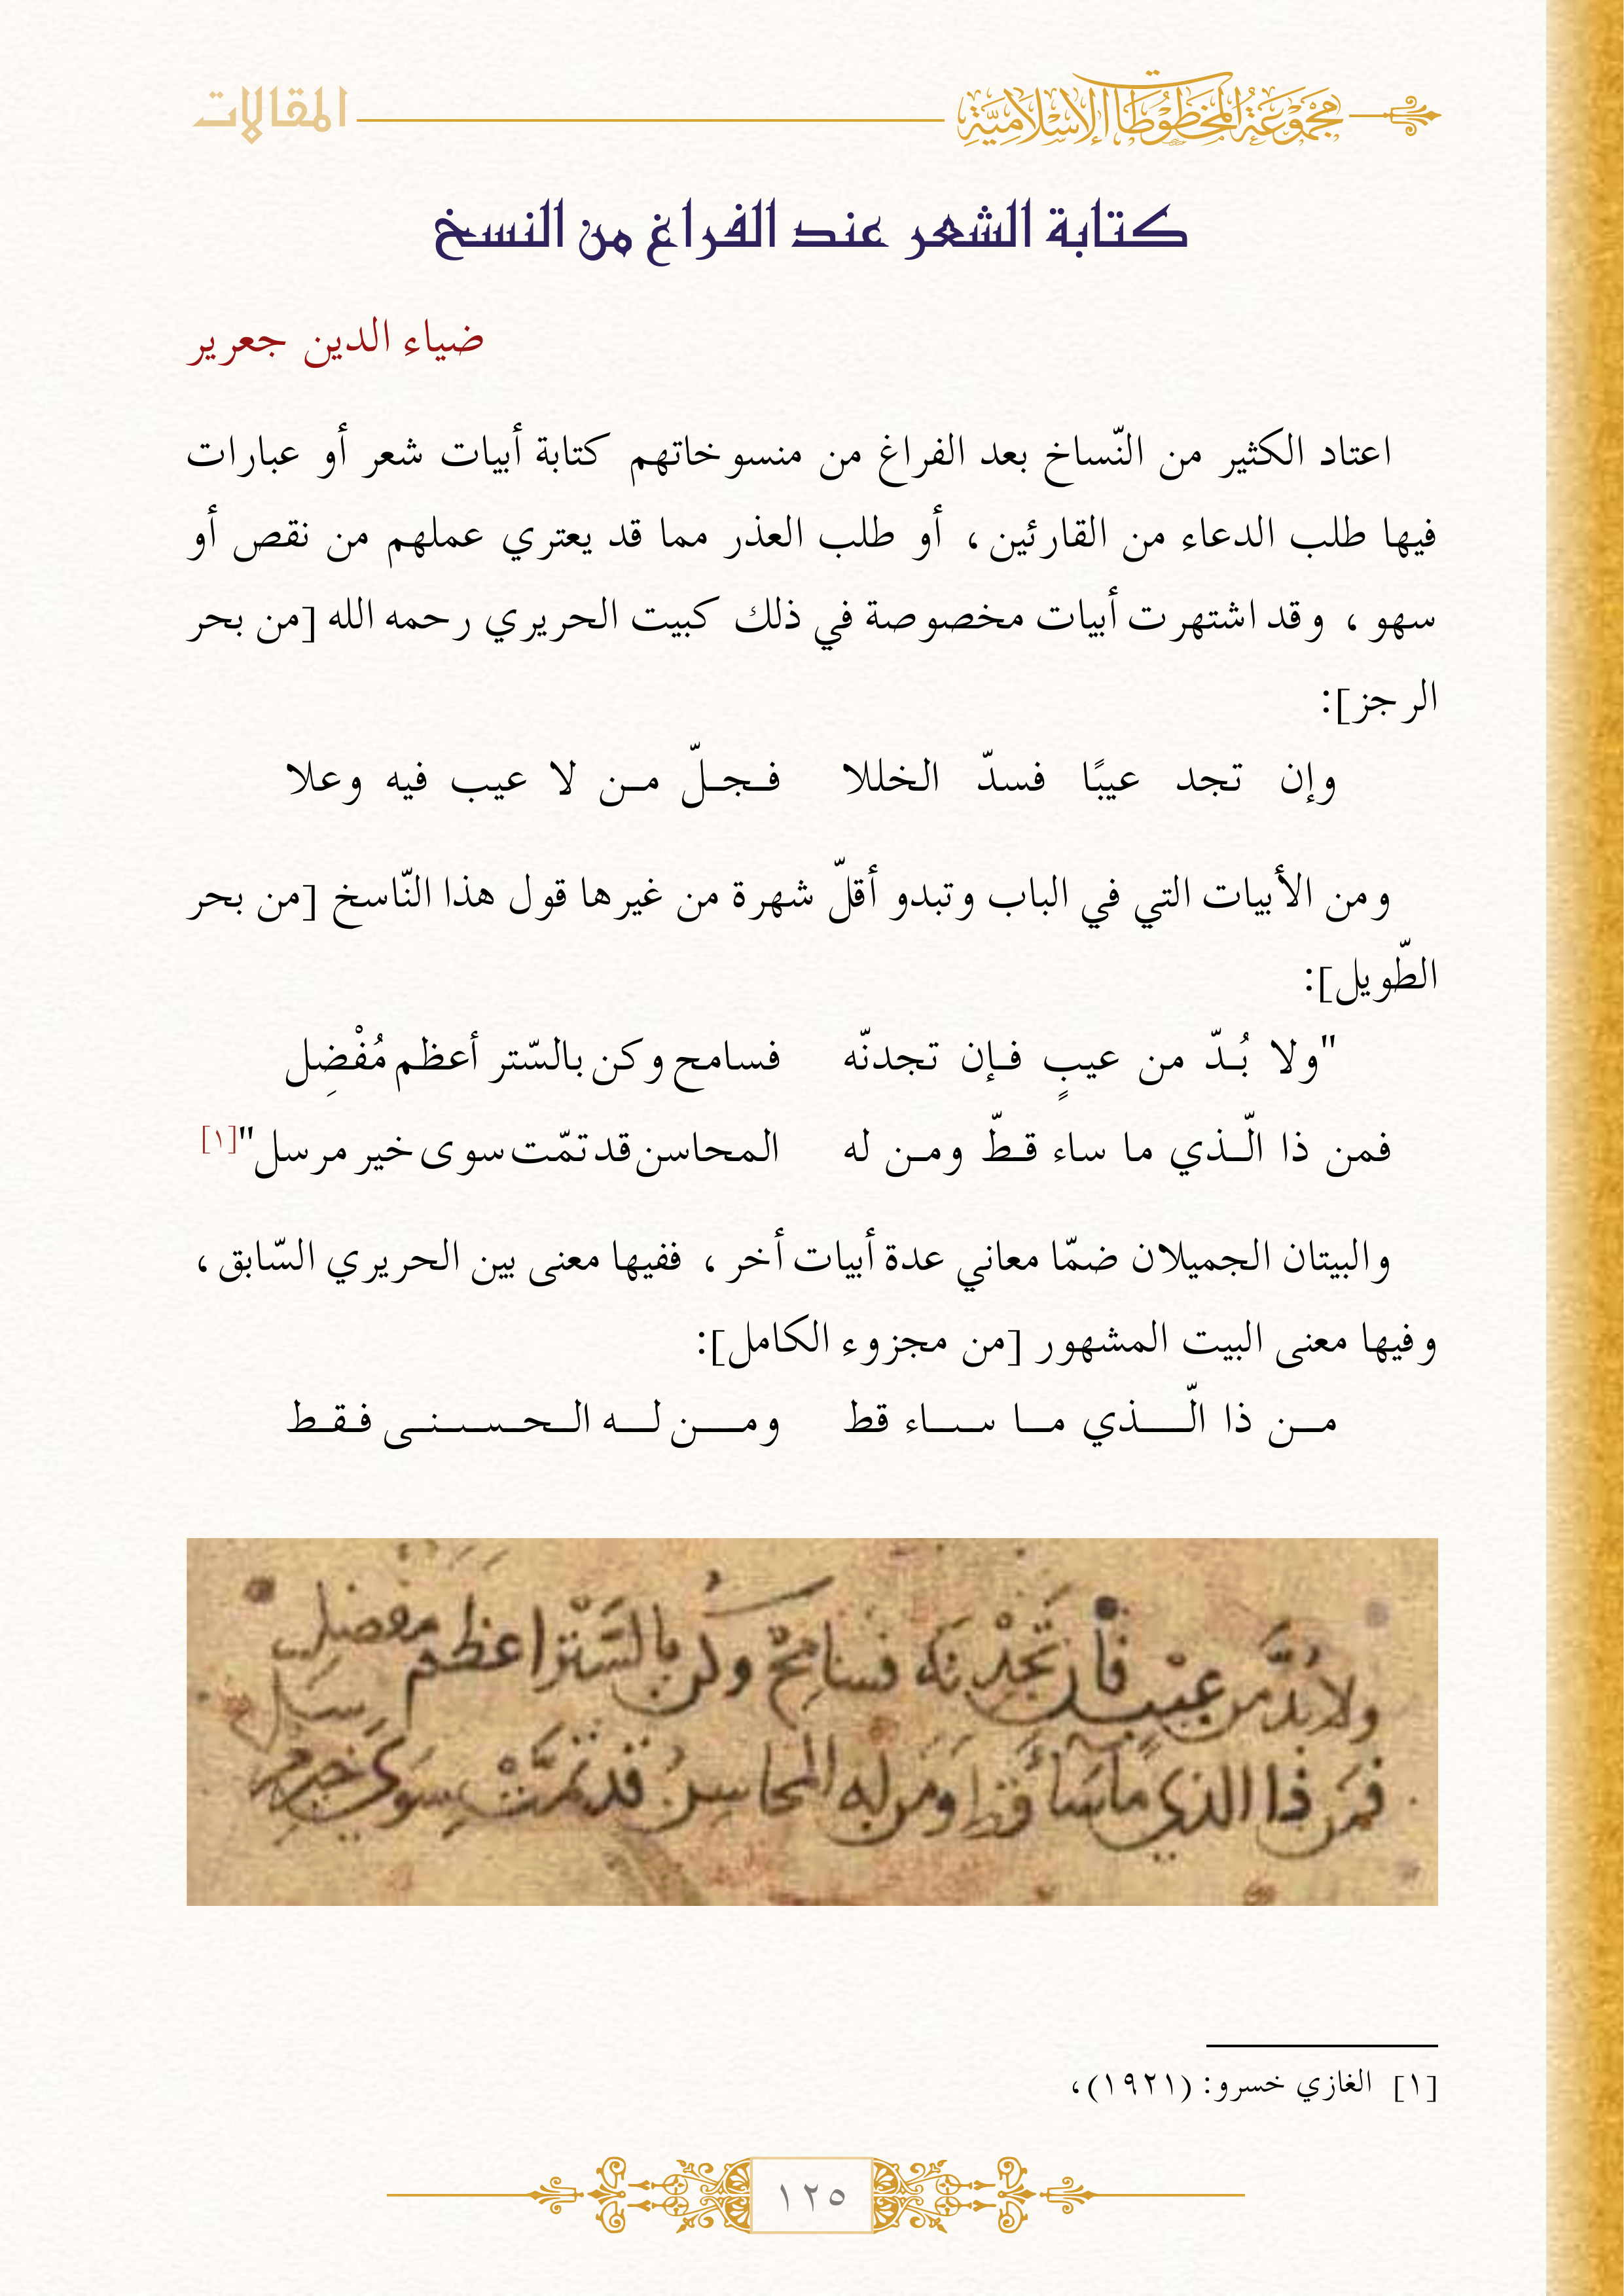 مجموعة المخطوطات الإسلامية
المقالات
كتابة الشعر عند الفراغ من النسخ
ضياء الدين جعرير
اعتاد الكثير من النّساخ بعد الفراغ من منسوخاتهم كتابة أبيات شعر أو عبارات
فيها طلب الدعاء من القارئين، أو طلب العذر مما قد يعتري عملهم من نقص أو
سهو، وقد اشتهرت أبيات مخصوصة في ذلك كبيت الحريري رحمه الله [من بحر
الرجز]:
وإن تجد عيبًا فسدّ الخللا فجلّ من لا عيب فيه وعلا
ومن الأبيات التي في الباب وتبدو أقلّ شهرة من غيرها قول هذا النّاسخ [من بحر
الطّويل]:
"ولا بُدّ من عيبٍ فإن تجدنّه فسامح وكن بالسّتر أعظم مُفْضِل
فمن ذا الّذي ما ساء قطّ ومن له المحاسن قد تمّت سوى خير مرسل"[١]
والبيتان الجميلان ضمّا معاني عدة أبيات أخر، ففيها معنى بين الحريري السّابق،
وفيها معنى البيت المشهور [من مجزوء الكامل]:
من ذا الّذي ما ساء قط ومن له الحسنى فقط
ولا بُدَّ من عيْبٍ فان تَجْدنَه فسَامِحْ وكن بالسَتْر اعظم مفضل
فمَن ذا الذي مَا سَأ قط ومَن له المحاسن قد تمَّتْ سِوَى خير مرسَل
[١] الغازي خسرو: (١٩٢١)،
١٢٥